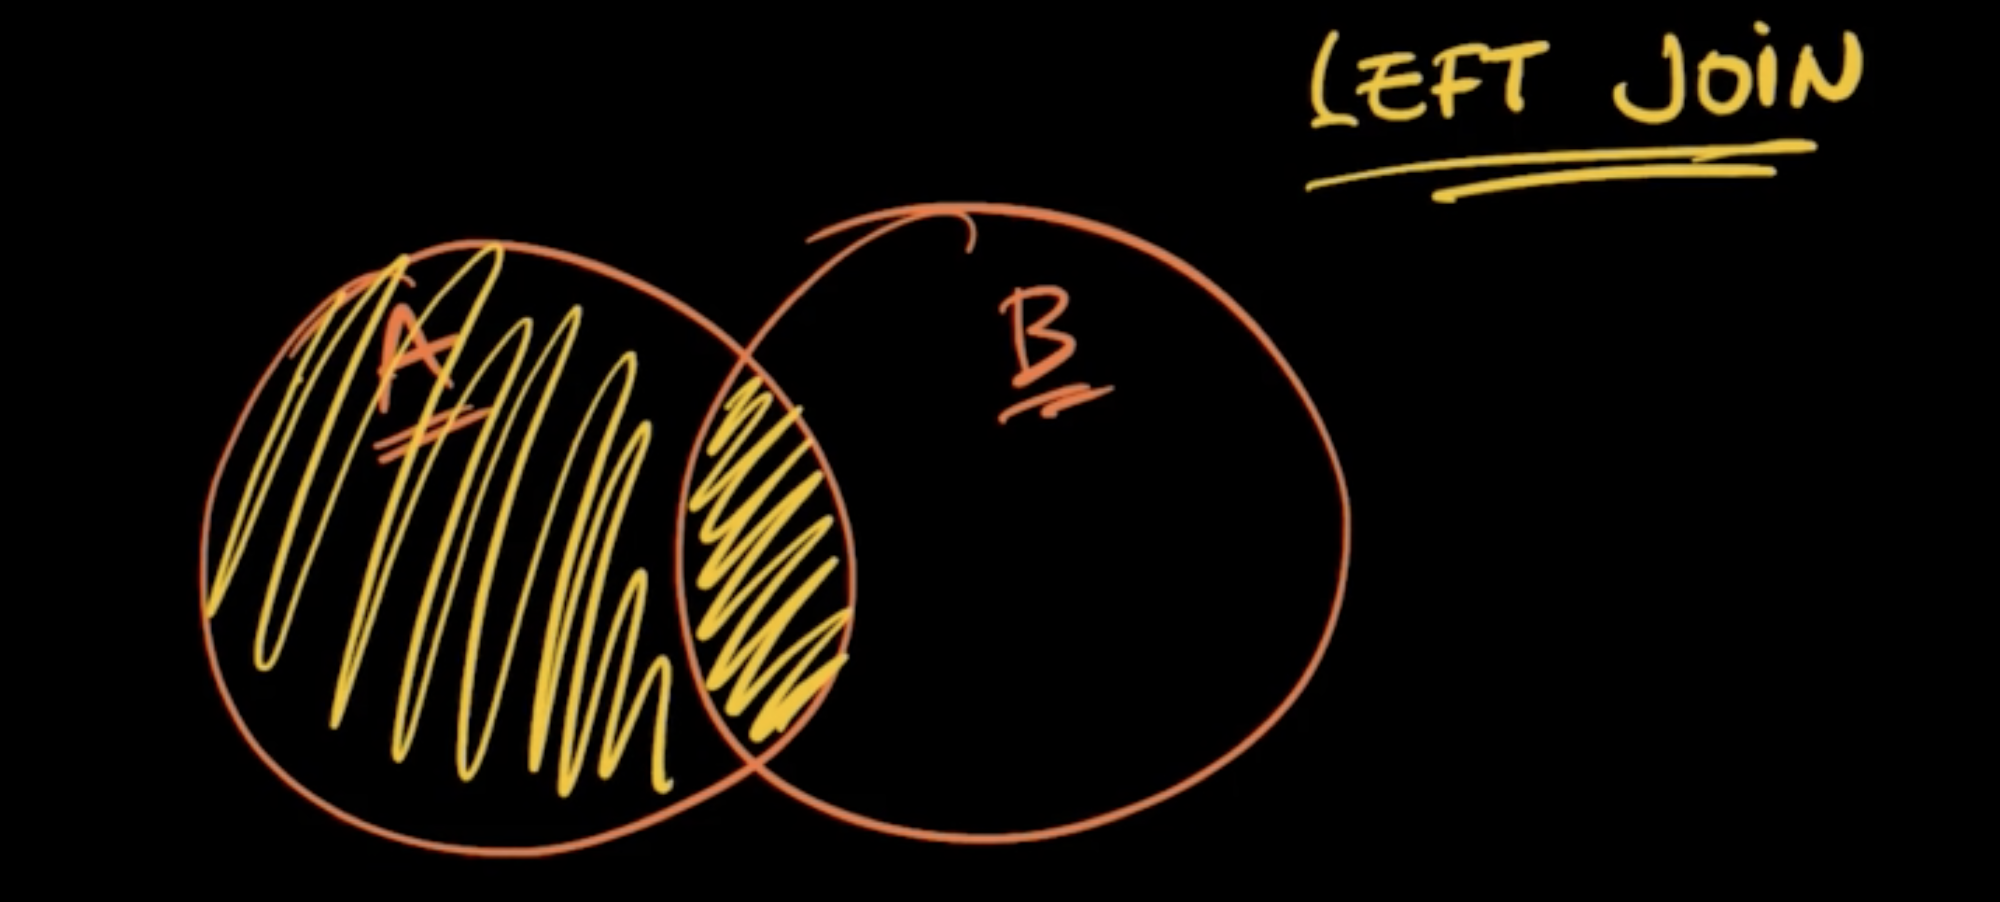 LEFT JOIN
A
B